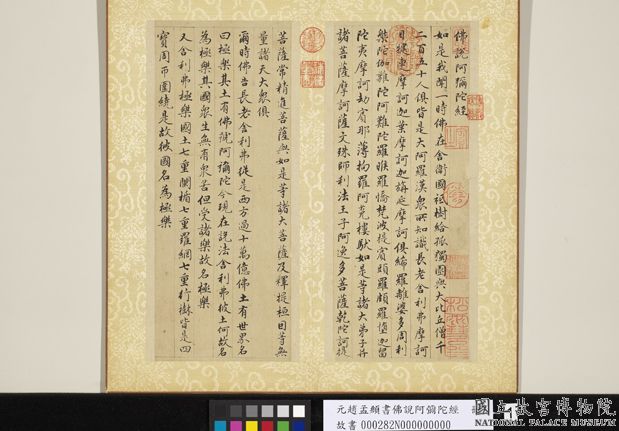 佛說阿彌陀經
如是我聞一時佛在舍衛國祇樹給孤獨園與大比丘僧千
二百五十人俱皆是大阿羅漢眾所知識長老舍利弗摩訶
目揵連摩訶迦葉摩訶迦旃延摩訶俱絺羅離婆多周利
槃陀伽難陀阿難陀羅睺羅憍梵波提賓頭盧頗羅墮迦留
陀夷摩訶劫賓那薄拘羅阿㝹樓馱如是等諸大弟子并
諸菩薩摩訶薩文殊師利法王子阿逸多菩薩乾陀訶提
菩薩常精進菩薩與如是等諸大菩薩及釋提桓因等無
量諸天大眾俱
爾時佛告長老舍利弗從是西方過十萬億佛土有世界名
曰極樂其土有佛號阿彌陀今現在說法舍利弗彼土何故名
為極樂其國眾生無有眾苦但受諸樂故名極樂
又舍利弗極樂國土七重欄楯七重羅網七重行樹皆是四
寶周帀圍繞是故彼國名為極樂
元趙孟頫書佛說阿彌陀經
故書 000282N000000000
國立故宮博物院
NATIONAL PALACE MUSEUM